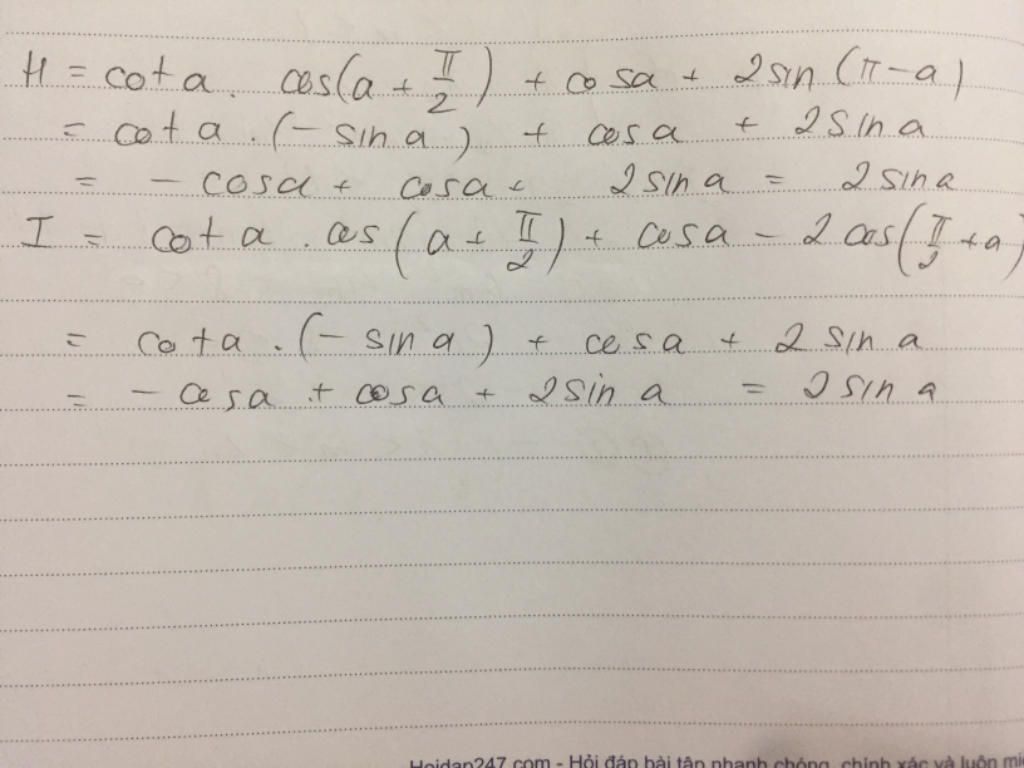 H = cot a. cos(a + π/2) + cosa + 2sin(π-a)
= cot a . (- sin a) + cosa + 2sin a
= - cosa + cosa + 2sin a = 2sin a
I = cot a . cos(a + π/2) + cosa - 2cos(π/2 + a)
= cot a . (- sin a) + cosa + 2 sin a
= - cosa + cosa + 2sin a = 2sin a
Hoidap247.com - Hỏi đáp bài tập nhanh chóng, chính xác và luôn